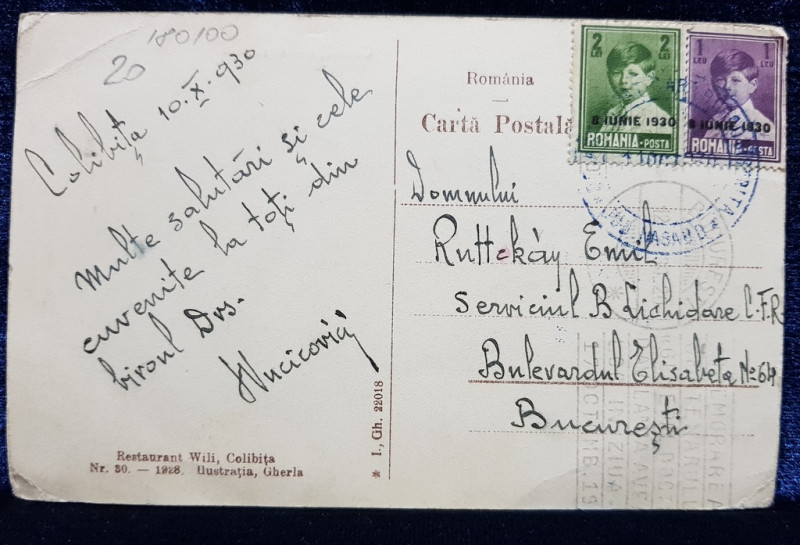 20
180/100
Colibița 10.X.930
Multe salutări și cele
cuvenite la toți din
biroul Dvs.
Restaurant Wili, Colibița
Nr. 30. — 1928. Ilustrația, Gherla
* I., Gh. 22018
România
Carta Postală
2 LEI 2 LEI
8 IUNIE 1930
ROMANIA·POSTA
1 LEU 1 LEU
8 IUNIE 1930
ROMANIA·POSTA
Domnului
Ruttkáy Emil
Serviciul B Lichidare C.F.R.
Bulevardul Elisabeta No 64
București